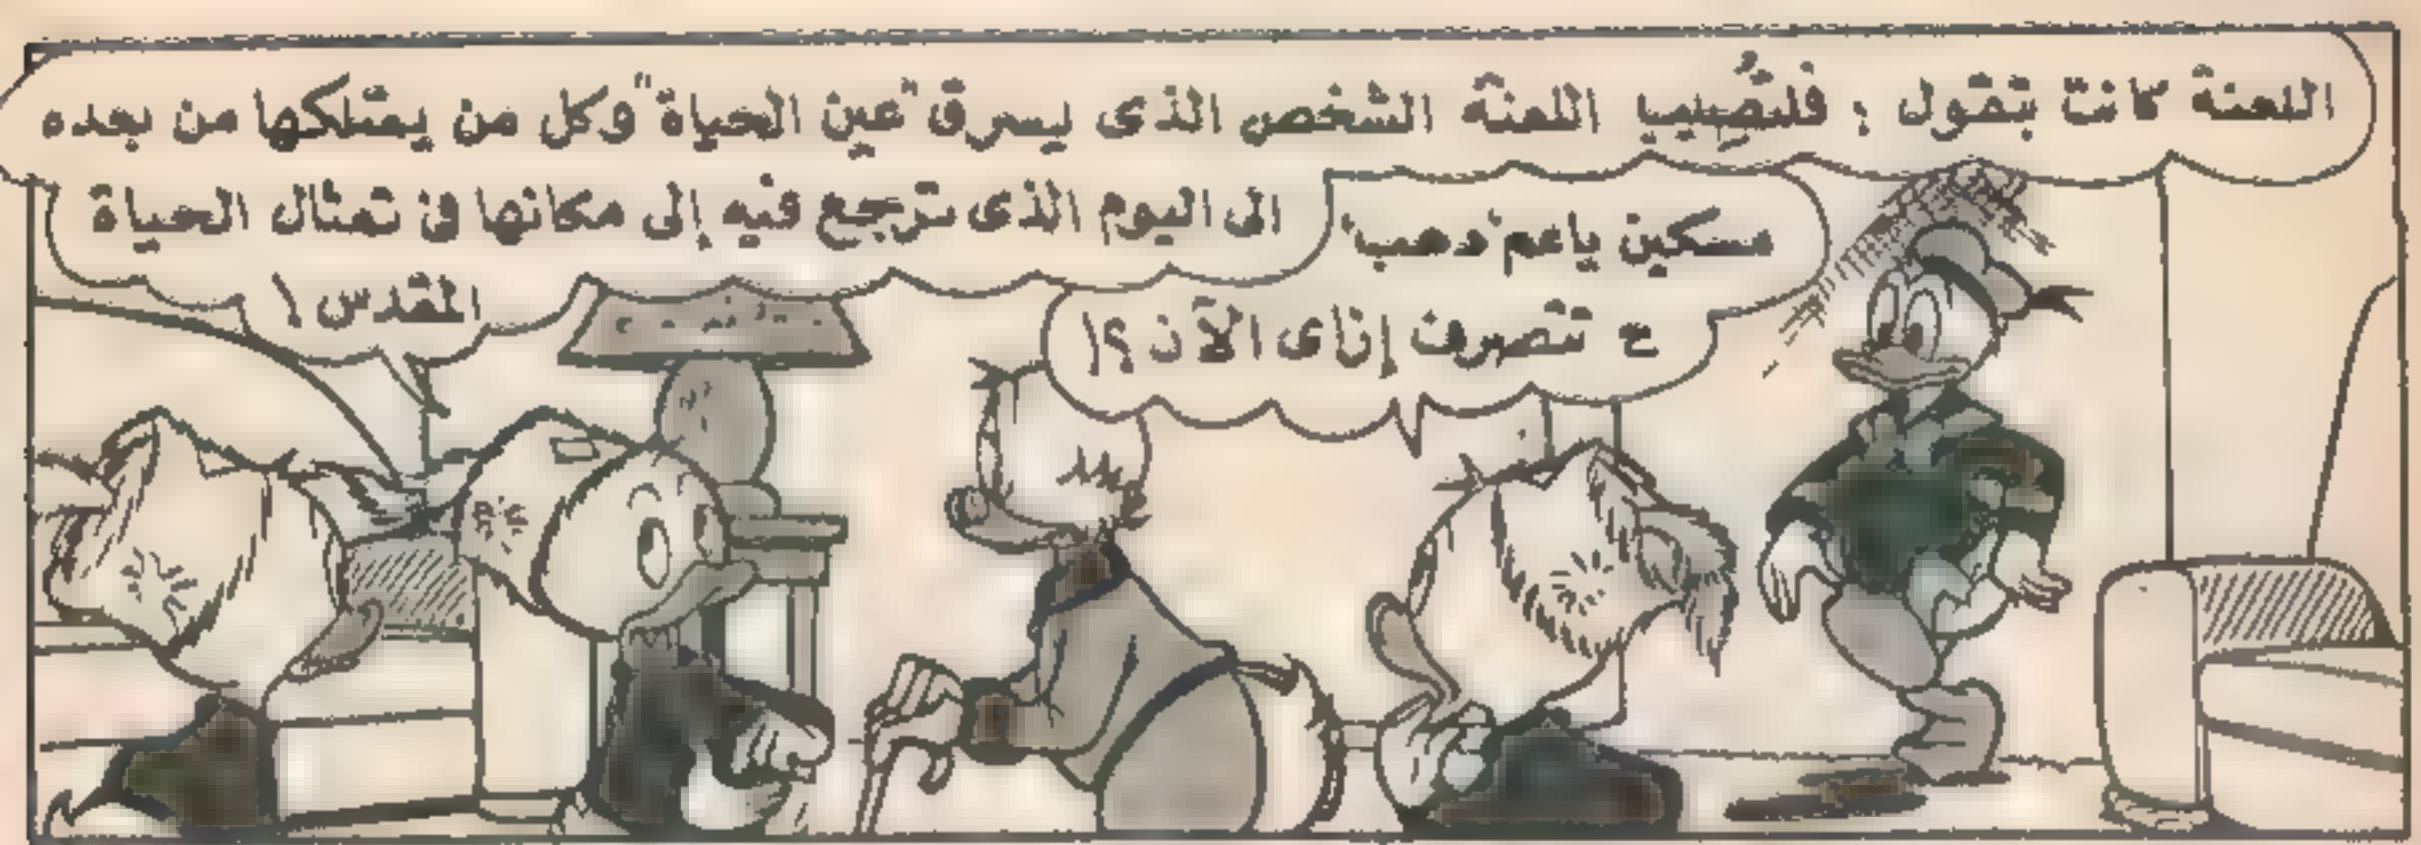 اللعنة كانت بتقول : فلتُصِيب اللعنة الشخص الذى يسرق "عين الحياة" وكل من يمتلكها من بعده
الى اليوم الذى ترجع فيه إلى مكانها فى تمثال الحياة
المقدس !
مسكين ياعم "دهب"
ح تتصرف إزاى الآن ؟!